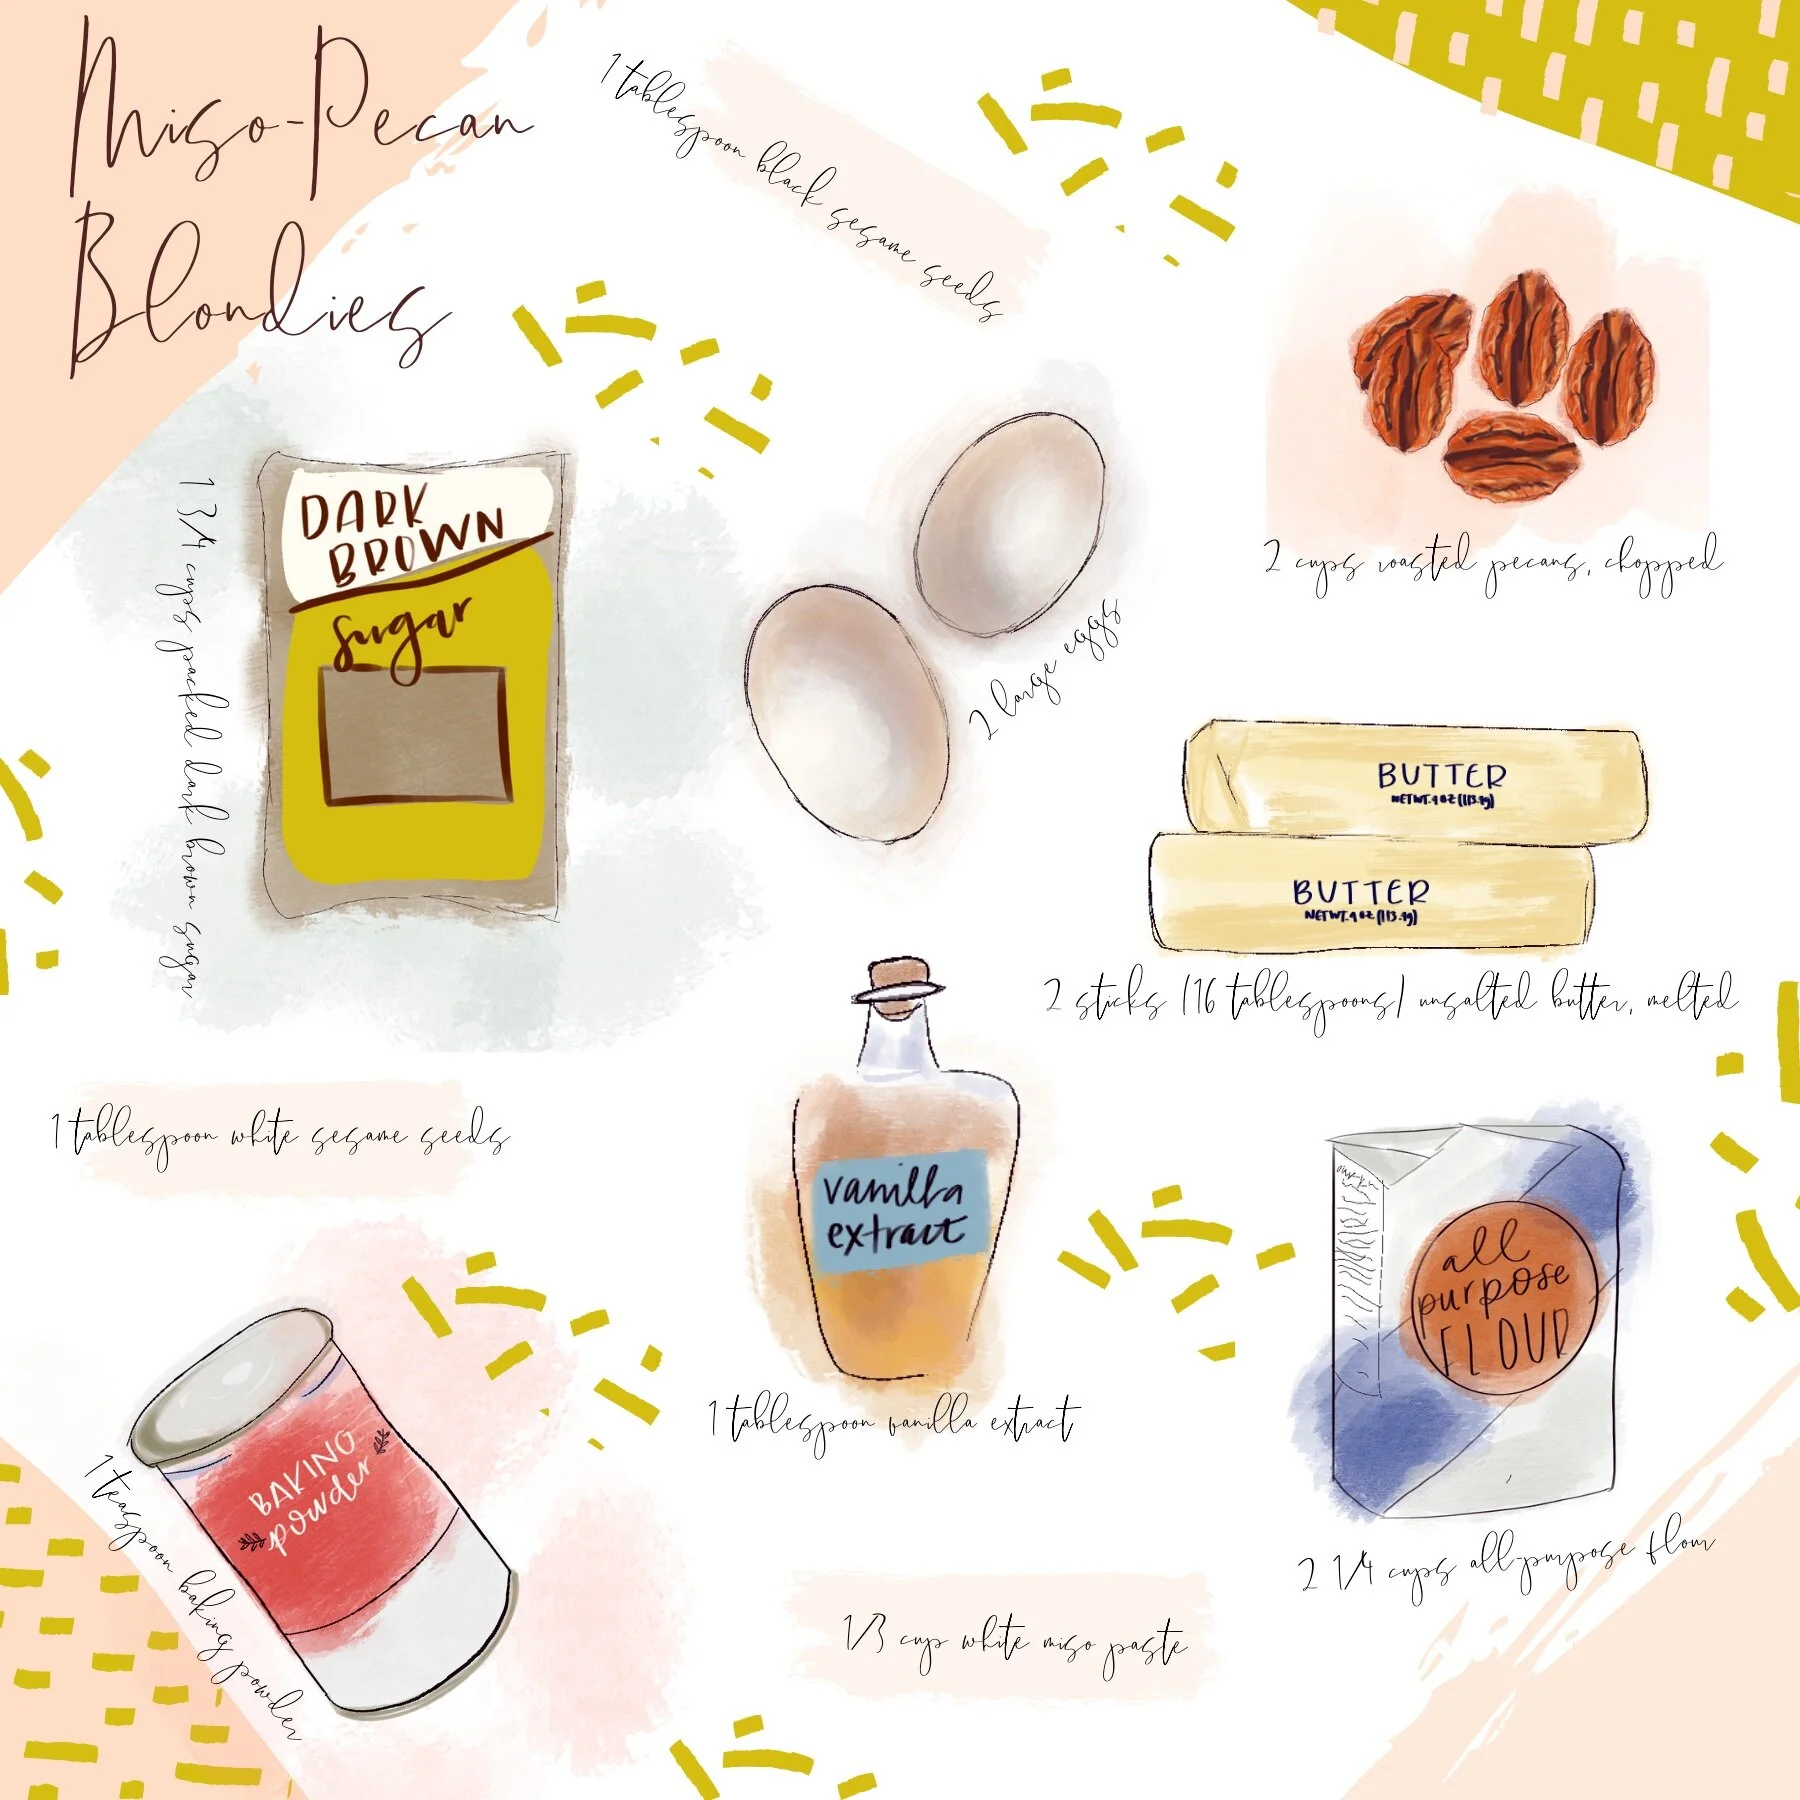 Miso-Pecan
Blondies
1 tablespoon black sesame seeds
2 cups roasted pecans, chopped
DARK
BROWN
sugar
1 3/4 cups packed dark brown sugar
2 large eggs
BUTTER
NET WT. 4 OZ (113.4g)
BUTTER
NET WT. 4 OZ (113.4g)
2 sticks (16 tablespoons) unsalted butter, melted
1 tablespoon white sesame seeds
vanilla
extract
1 tablespoon vanilla extract
all
purpose
FLOUR
2 1/4 cups all-purpose flour
BAKING
powder
1 teaspoon baking powder
1/3 cup white miso paste